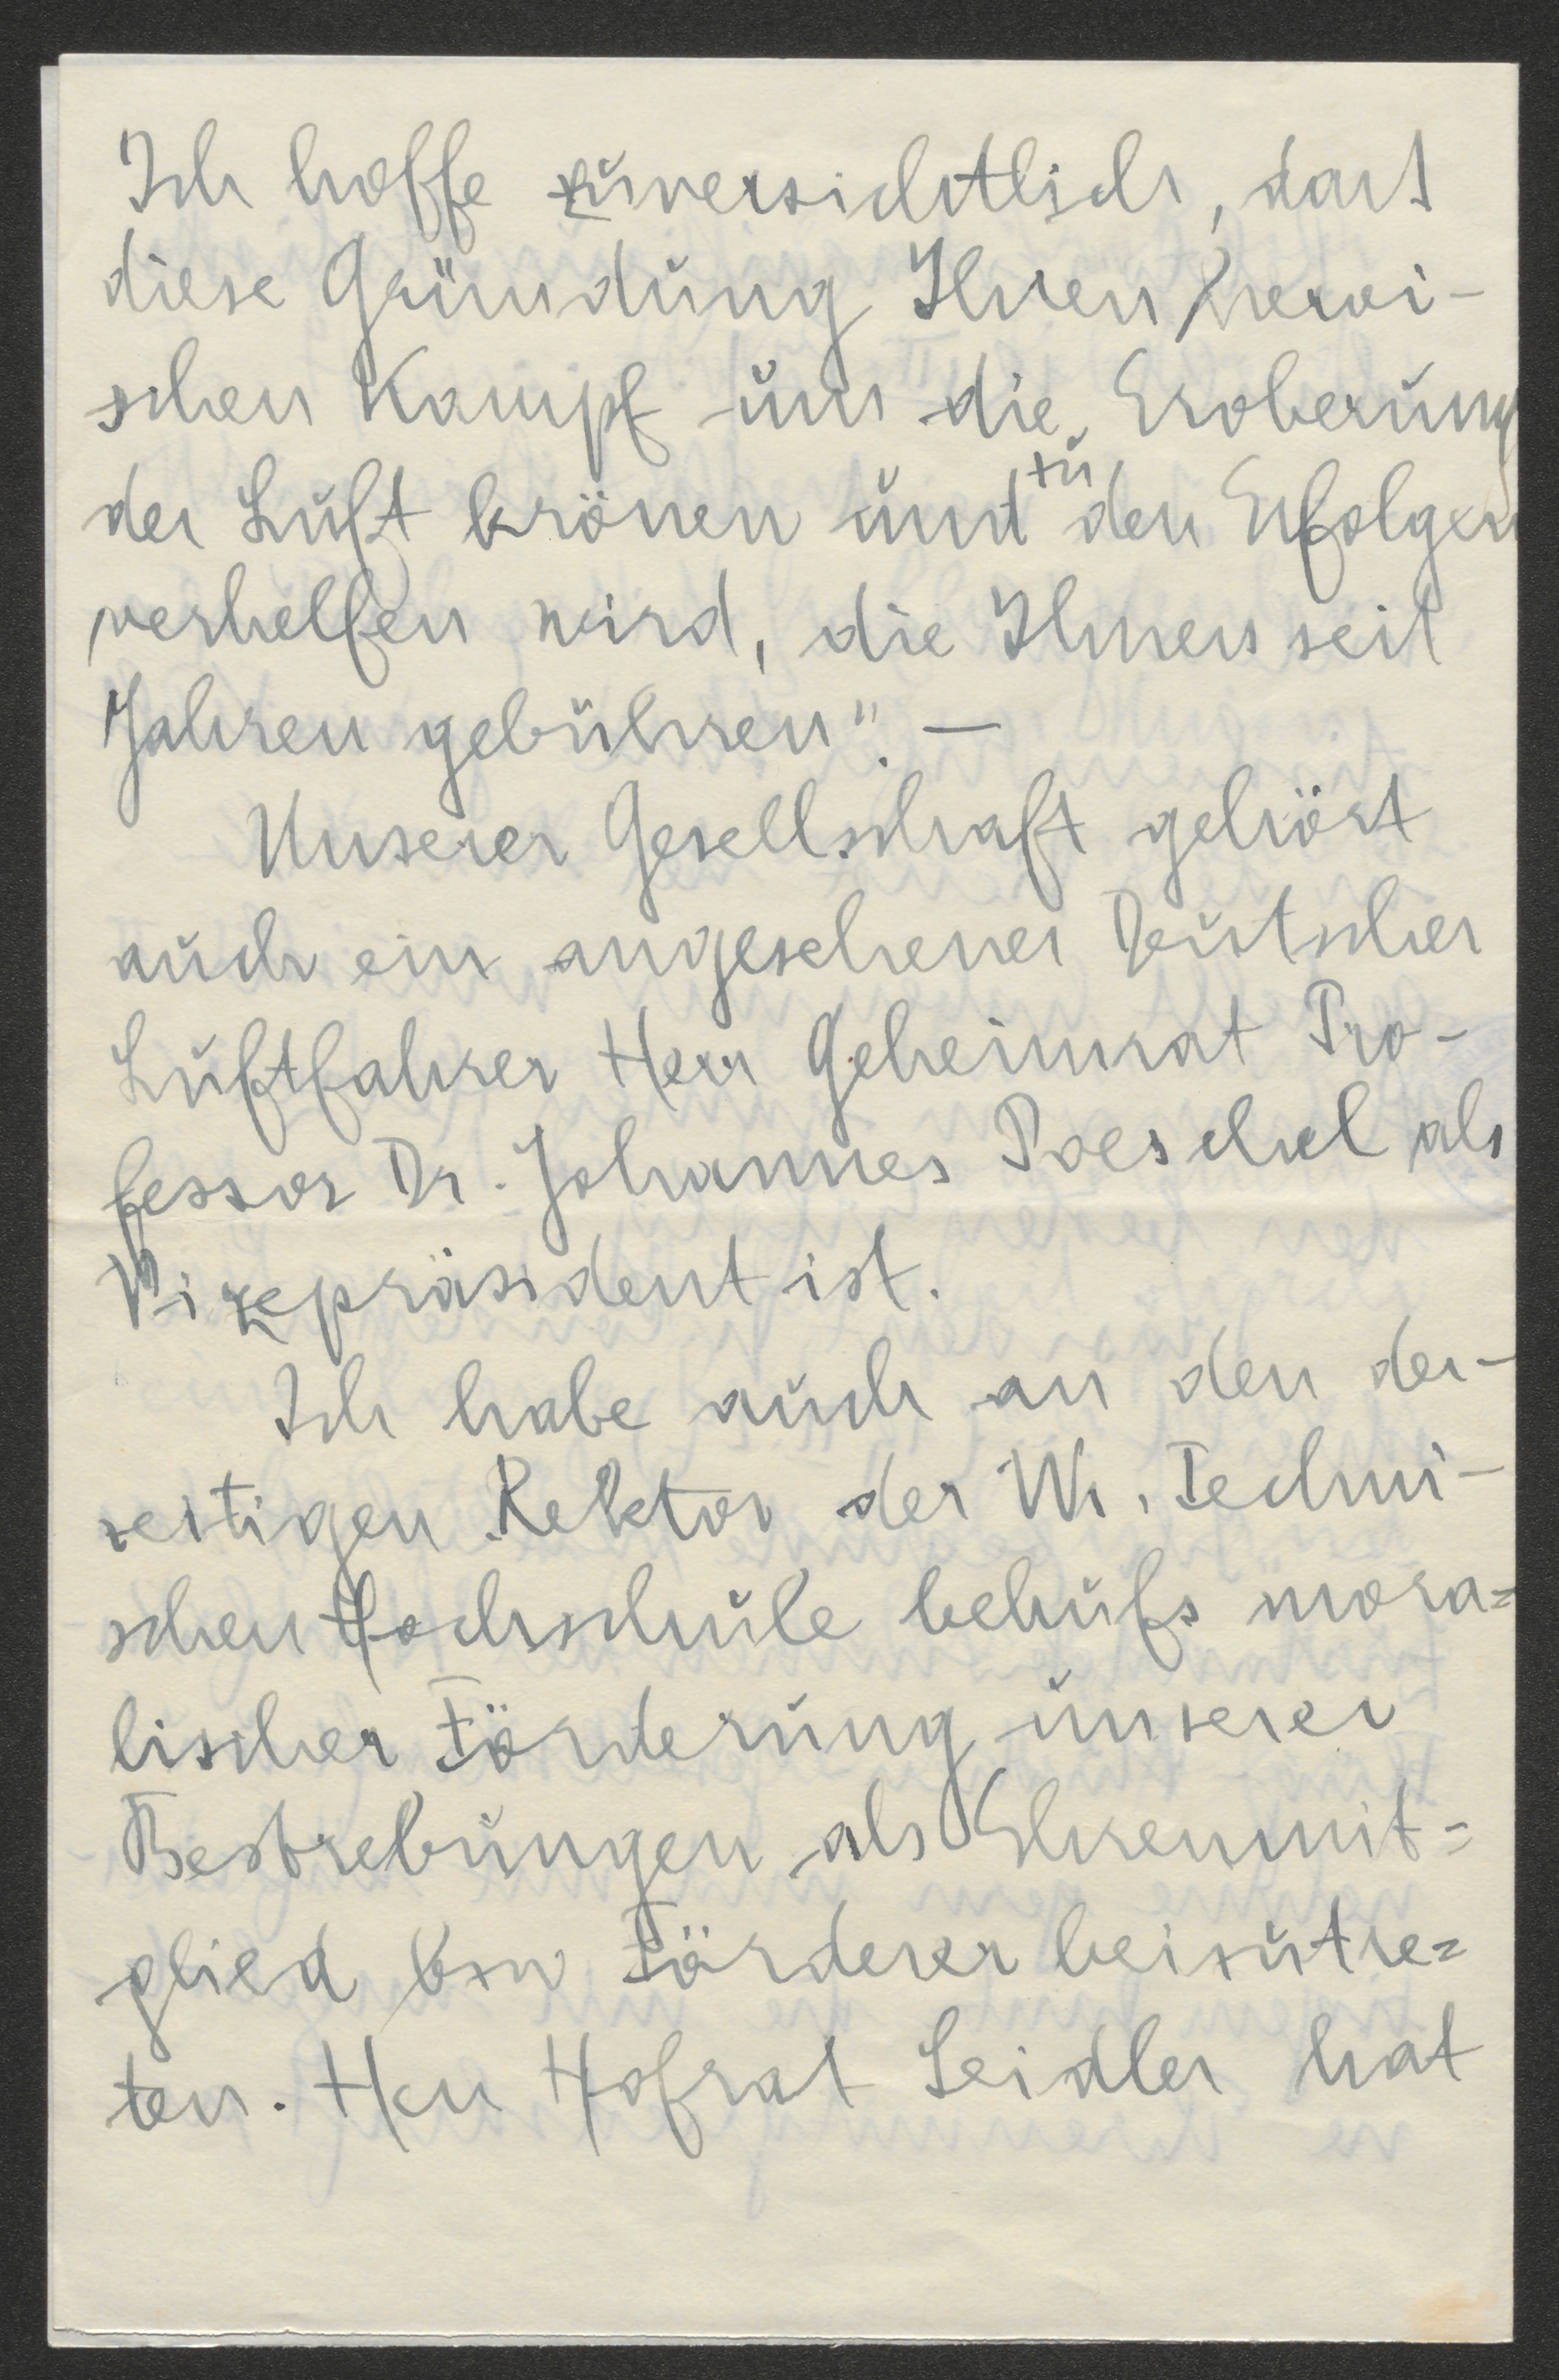 Ich hoffe zuversichtlich, dass
diese Gründung Ihren heroi-
schen Kampf um die Eroberung
der Luft krönen und zu den Erfolgen
verhelfen wird, die Ihnen seit
Jahren gebühren". —
Unserer Gesellschaft gehört
auch ein angesehener Deutscher
Luftfahrer Herr Geheimrat Pro-
fessor Dr. Johannes Poeschel als
Vizepräsident ist.
Ich habe auch an den der-
zeitigen Rektor der Wr. Techni-
schen Hochschule behufs mora=
lischer Förderung unserer
Bestrebungen als Ehrenmit=
glied bzw Förderer beizutre=
ten. Herr Hofrat Seidler hat